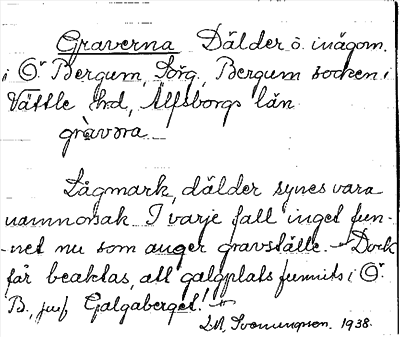 Graverna Dälder o. inägom.
i Ö. Bergum, Sörg. Bergum socken i
Vättle hd, Älfsborgs län
gràvəra
Lågmark, dälder synes vara
namnorsak. I varje fall inget fun-
-net nu som anger gravställe. – Dock
får beaktas, att galgplats funnits i Ö.
B., jmf Galgaberget!
1938.